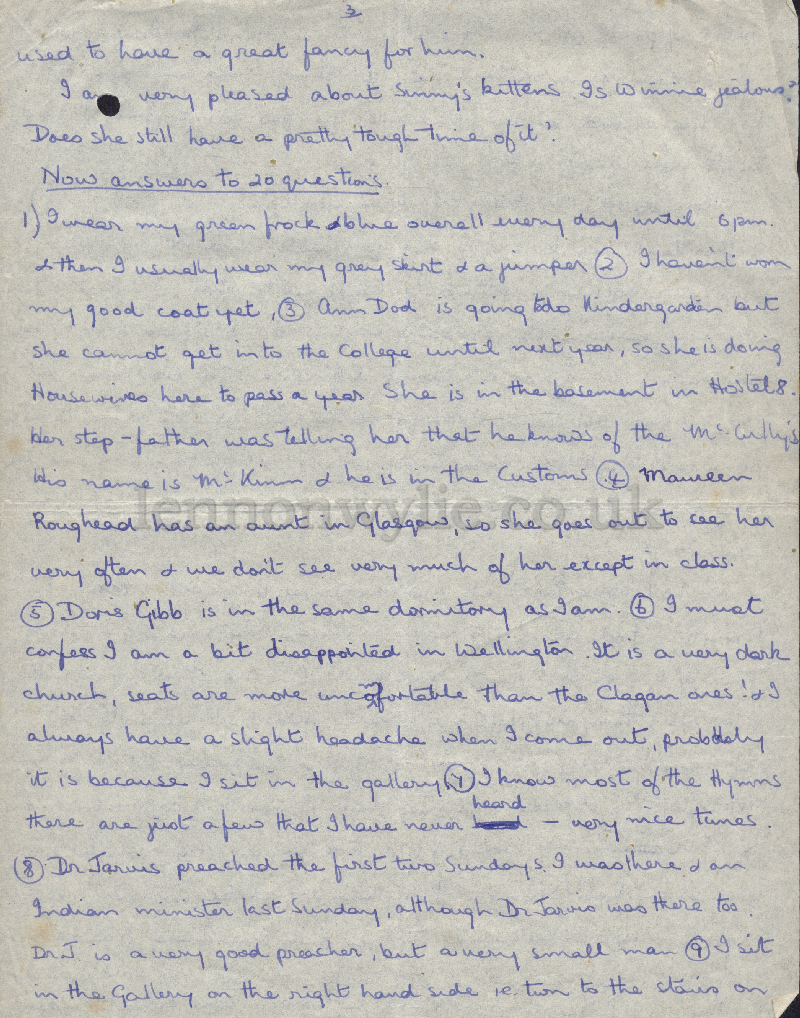 3
used to have a great fancy for him.
I a very pleased about Simmy's kittens Is Winnie jealous?
Does she still have a pretty tough time of it?
Now answers to 20 questions.
1) I wear my green frock & blue overall every day until 6pm.
& then I usually wear my grey skirt & a jumper (2) I haven't worn
my good coat yet, (3) Ann Dod is going to do Kindergarden but
she cannot get into the College until next year, so she is doing
Housewives here to pass a year She is in the basement in Hostel 8.
Her step-father was telling her that he knows of the McCully's
His name is McKimm & he is in the Customs (4) Maureen
lennonwylie.co.uk
Roughead has an aunt in Glasgow, so she goes out to see her
very often & we don't see very much of her except in class.
(5) Doris Gibb is in the same dormitory as I am. (6) I must
confess I am a bit disappointed in Wellington. It is a very dark
church, seats are more uncomfortable than the Clagan ones! & I
always have a slight headache when I come out, probably
it is because I sit in the gallery. (7) I know most of the Hymns
there are just a few that I have never heard – very nice tunes.
(8) Dr Jarvis preached the first two Sundays I was there & an
Indian minister last Sunday, although Dr Jarvis was there too.
Dr J is a very good preacher, but a very small man (9) I sit
in the Gallery on the right hand side i.e. turn to the stairs on